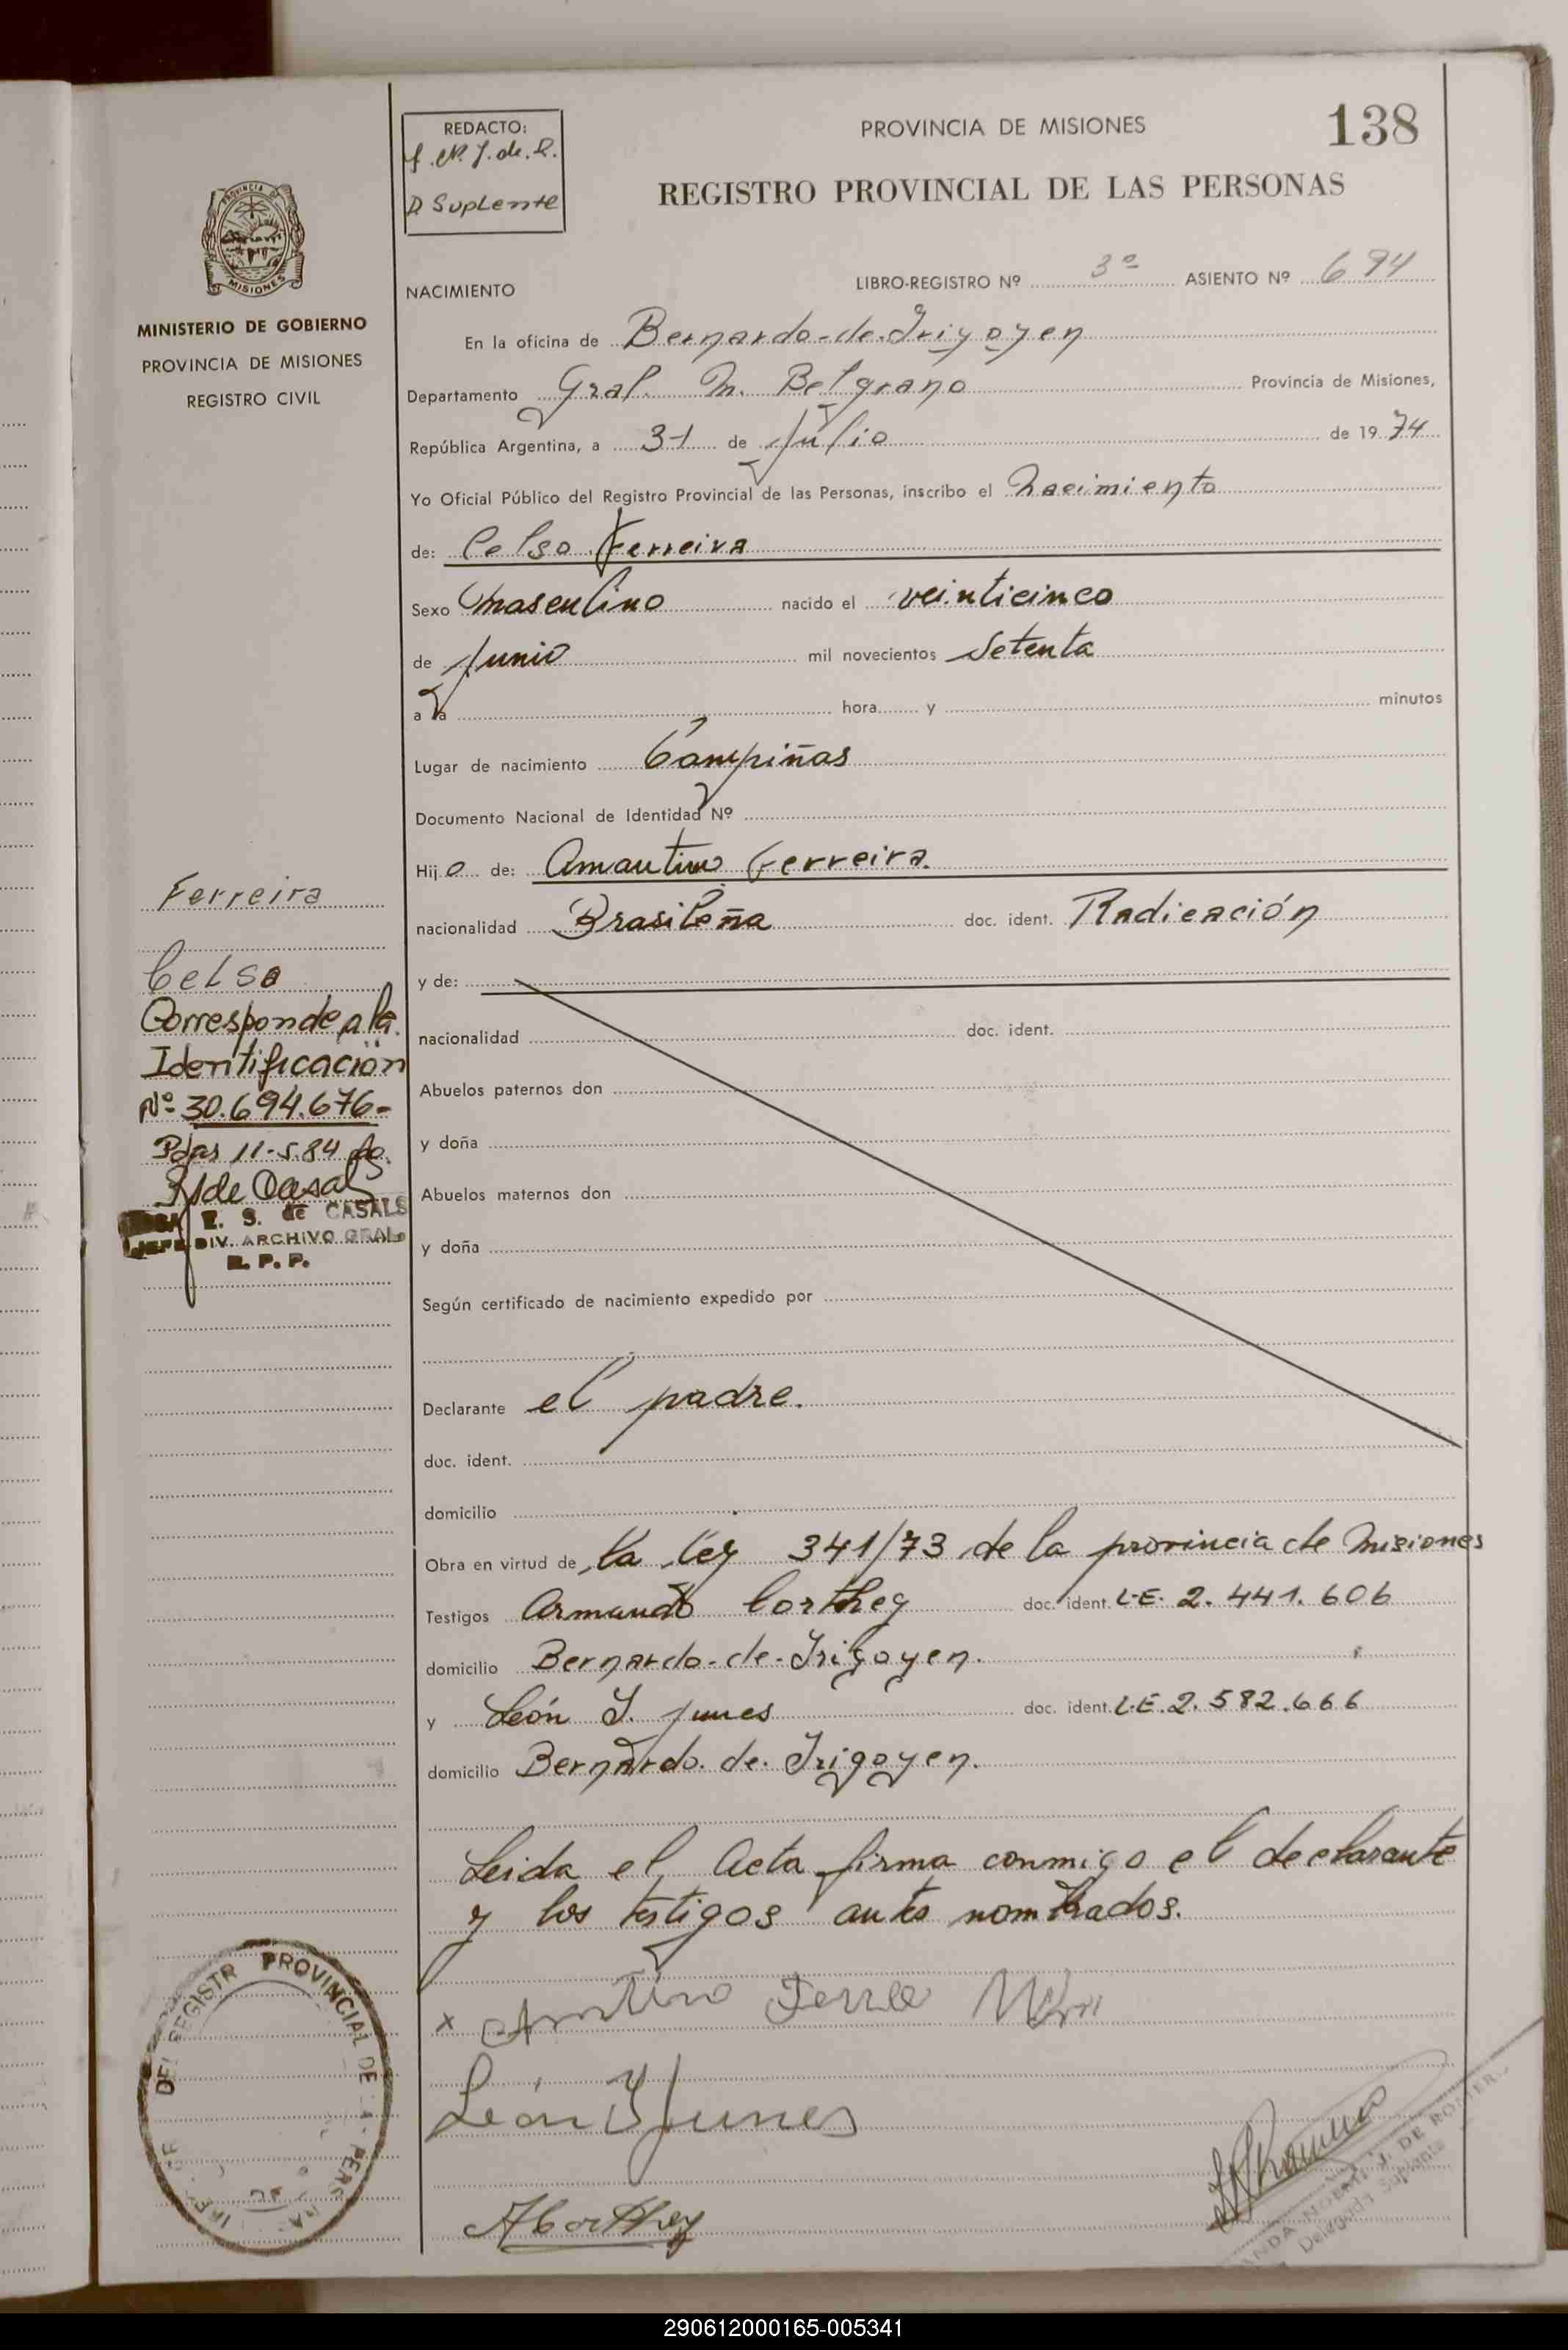 REDACTO:
D. Suplente
PROVINCIA DE MISIONES
138
REGISTRO PROVINCIAL DE LAS PERSONAS
MISIONES
MINISTERIO DE GOBIERNO
PROVINCIA DE MISIONES
REGISTRO CIVIL
NACIMIENTO LIBRO-REGISTRO Nº 3º ASIENTO Nº 694
En la oficina de Bernardo-de-Irigoyen
Departamento Gral. M. Belgrano Provincia de Misiones,
República Argentina, a 31 de Julio de 19 74
Yo Oficial Público del Registro Provincial de las Personas, inscribo el Nacimiento
de: Celso Ferreira
Sexo Masculino nacido el veinticinco
de Junio mil novecientos Setenta
a la hora y minutos
Lugar de nacimiento Campiñas
Documento Nacional de Identidad Nº
Hij o de: Amantino Ferreira.
nacionalidad Brasileña doc. ident. Radicación
y de:
nacionalidad doc. ident.
Abuelos paternos don
y doña
Abuelos maternos don
y doña
Según certificado de nacimiento expedido por
Declarante el padre.
doc. ident.
domicilio
Obra en virtud de la ley 341/73 de la provincia de Misiones
Testigos Armando Corthey doc. ident. L.E. 2.441.606
domicilio Bernardo-de-Irigoyen.
y León I. Junes doc. ident. L.E. 2.582.666
domicilio Bernardo. de. Irigoyen.
Leida el Acta firma conmigo el declarante
y los testigos ante nombrados.
x
León I Junes
ACorthey
Ferreira
Celso
Corresponde a la
Identificación
Nº 30.694.676-
Pdas 11-5-84
de Casals
E. S. de CASALS
JEFE DIV. ARCHIVO GRAL.
R. P. P.
DEL REGISTR PROVINCIAL DE
J. DE ROMER
Delegada Suplente
290612000165-005341